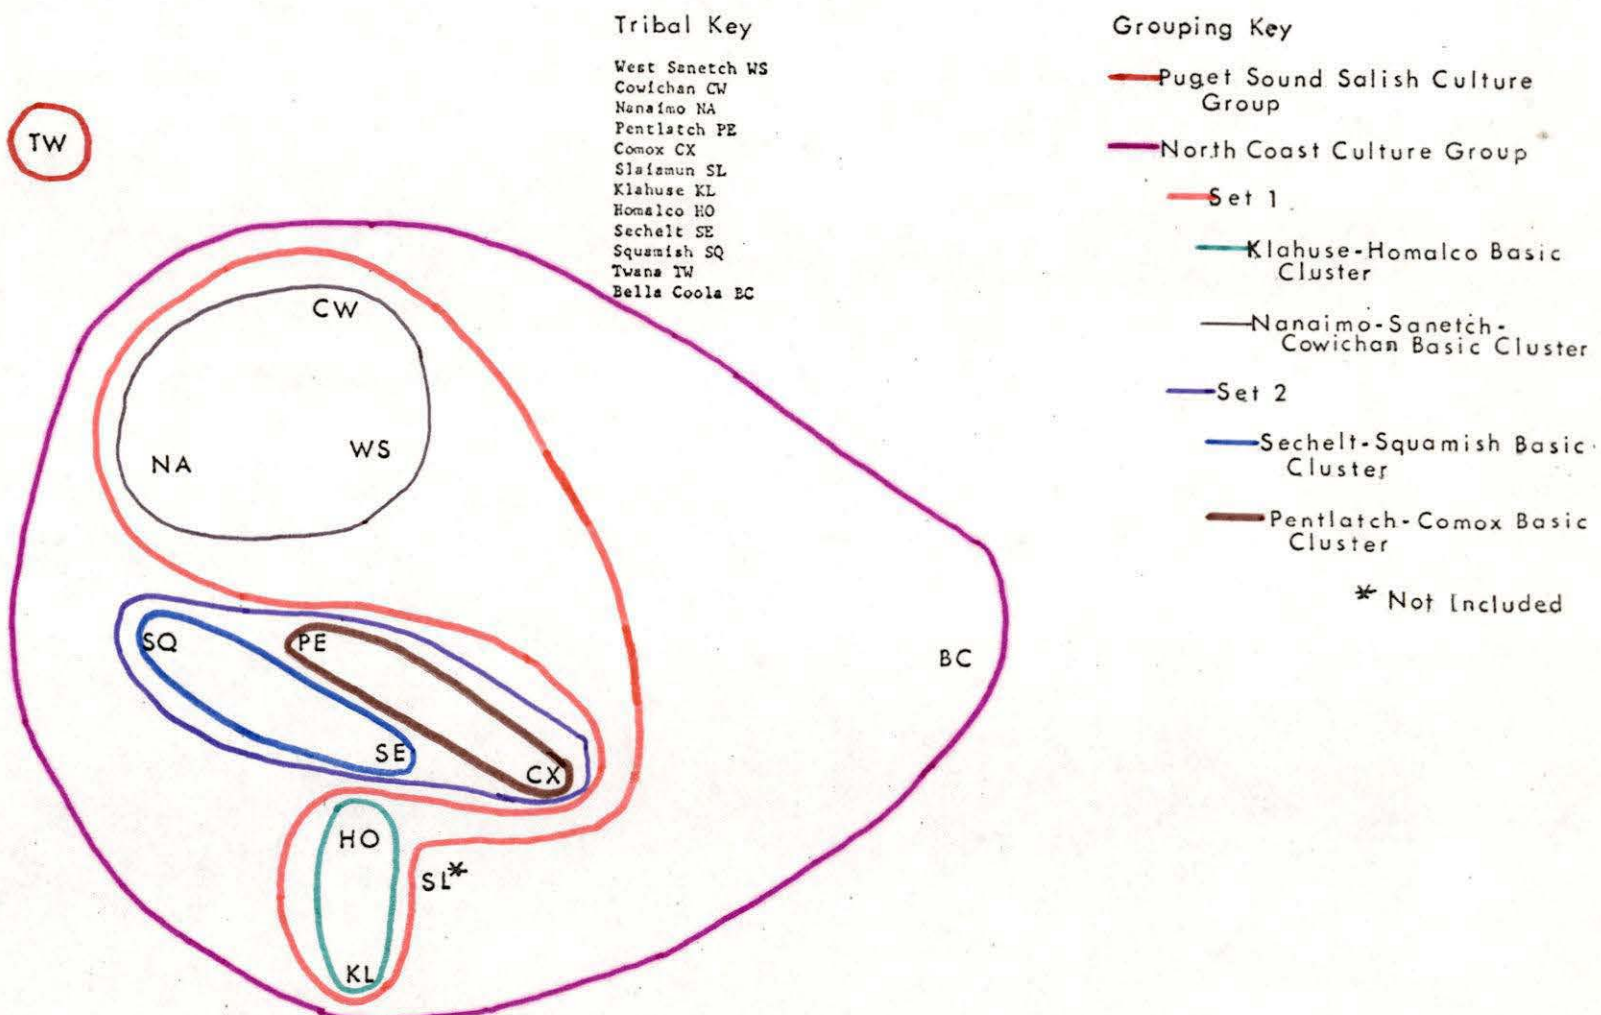 Tribal Key
West Sanetch WS
Cowichan CW
Nanaimo NA
Pentlatch PE
Comox CX
Slaiamun SL
Klahuse KL
Homalco HO
Sechelt SE
Squamish SQ
Twana TW
Bella Coola BC
Grouping Key
Puget Sound Salish Culture
Group
North Coast Culture Group
Set 1
Klahuse-Homalco Basic
Cluster
Nanaimo-Sanetch-
Cowichan Basic Cluster
Set 2
Sechelt-Squamish Basic
Cluster
Pentlatch-Comox Basic
Cluster
* Not Included
TW
CW
NA
WS
SQ
PE
BC
SE
CX
HO
SL*
KL